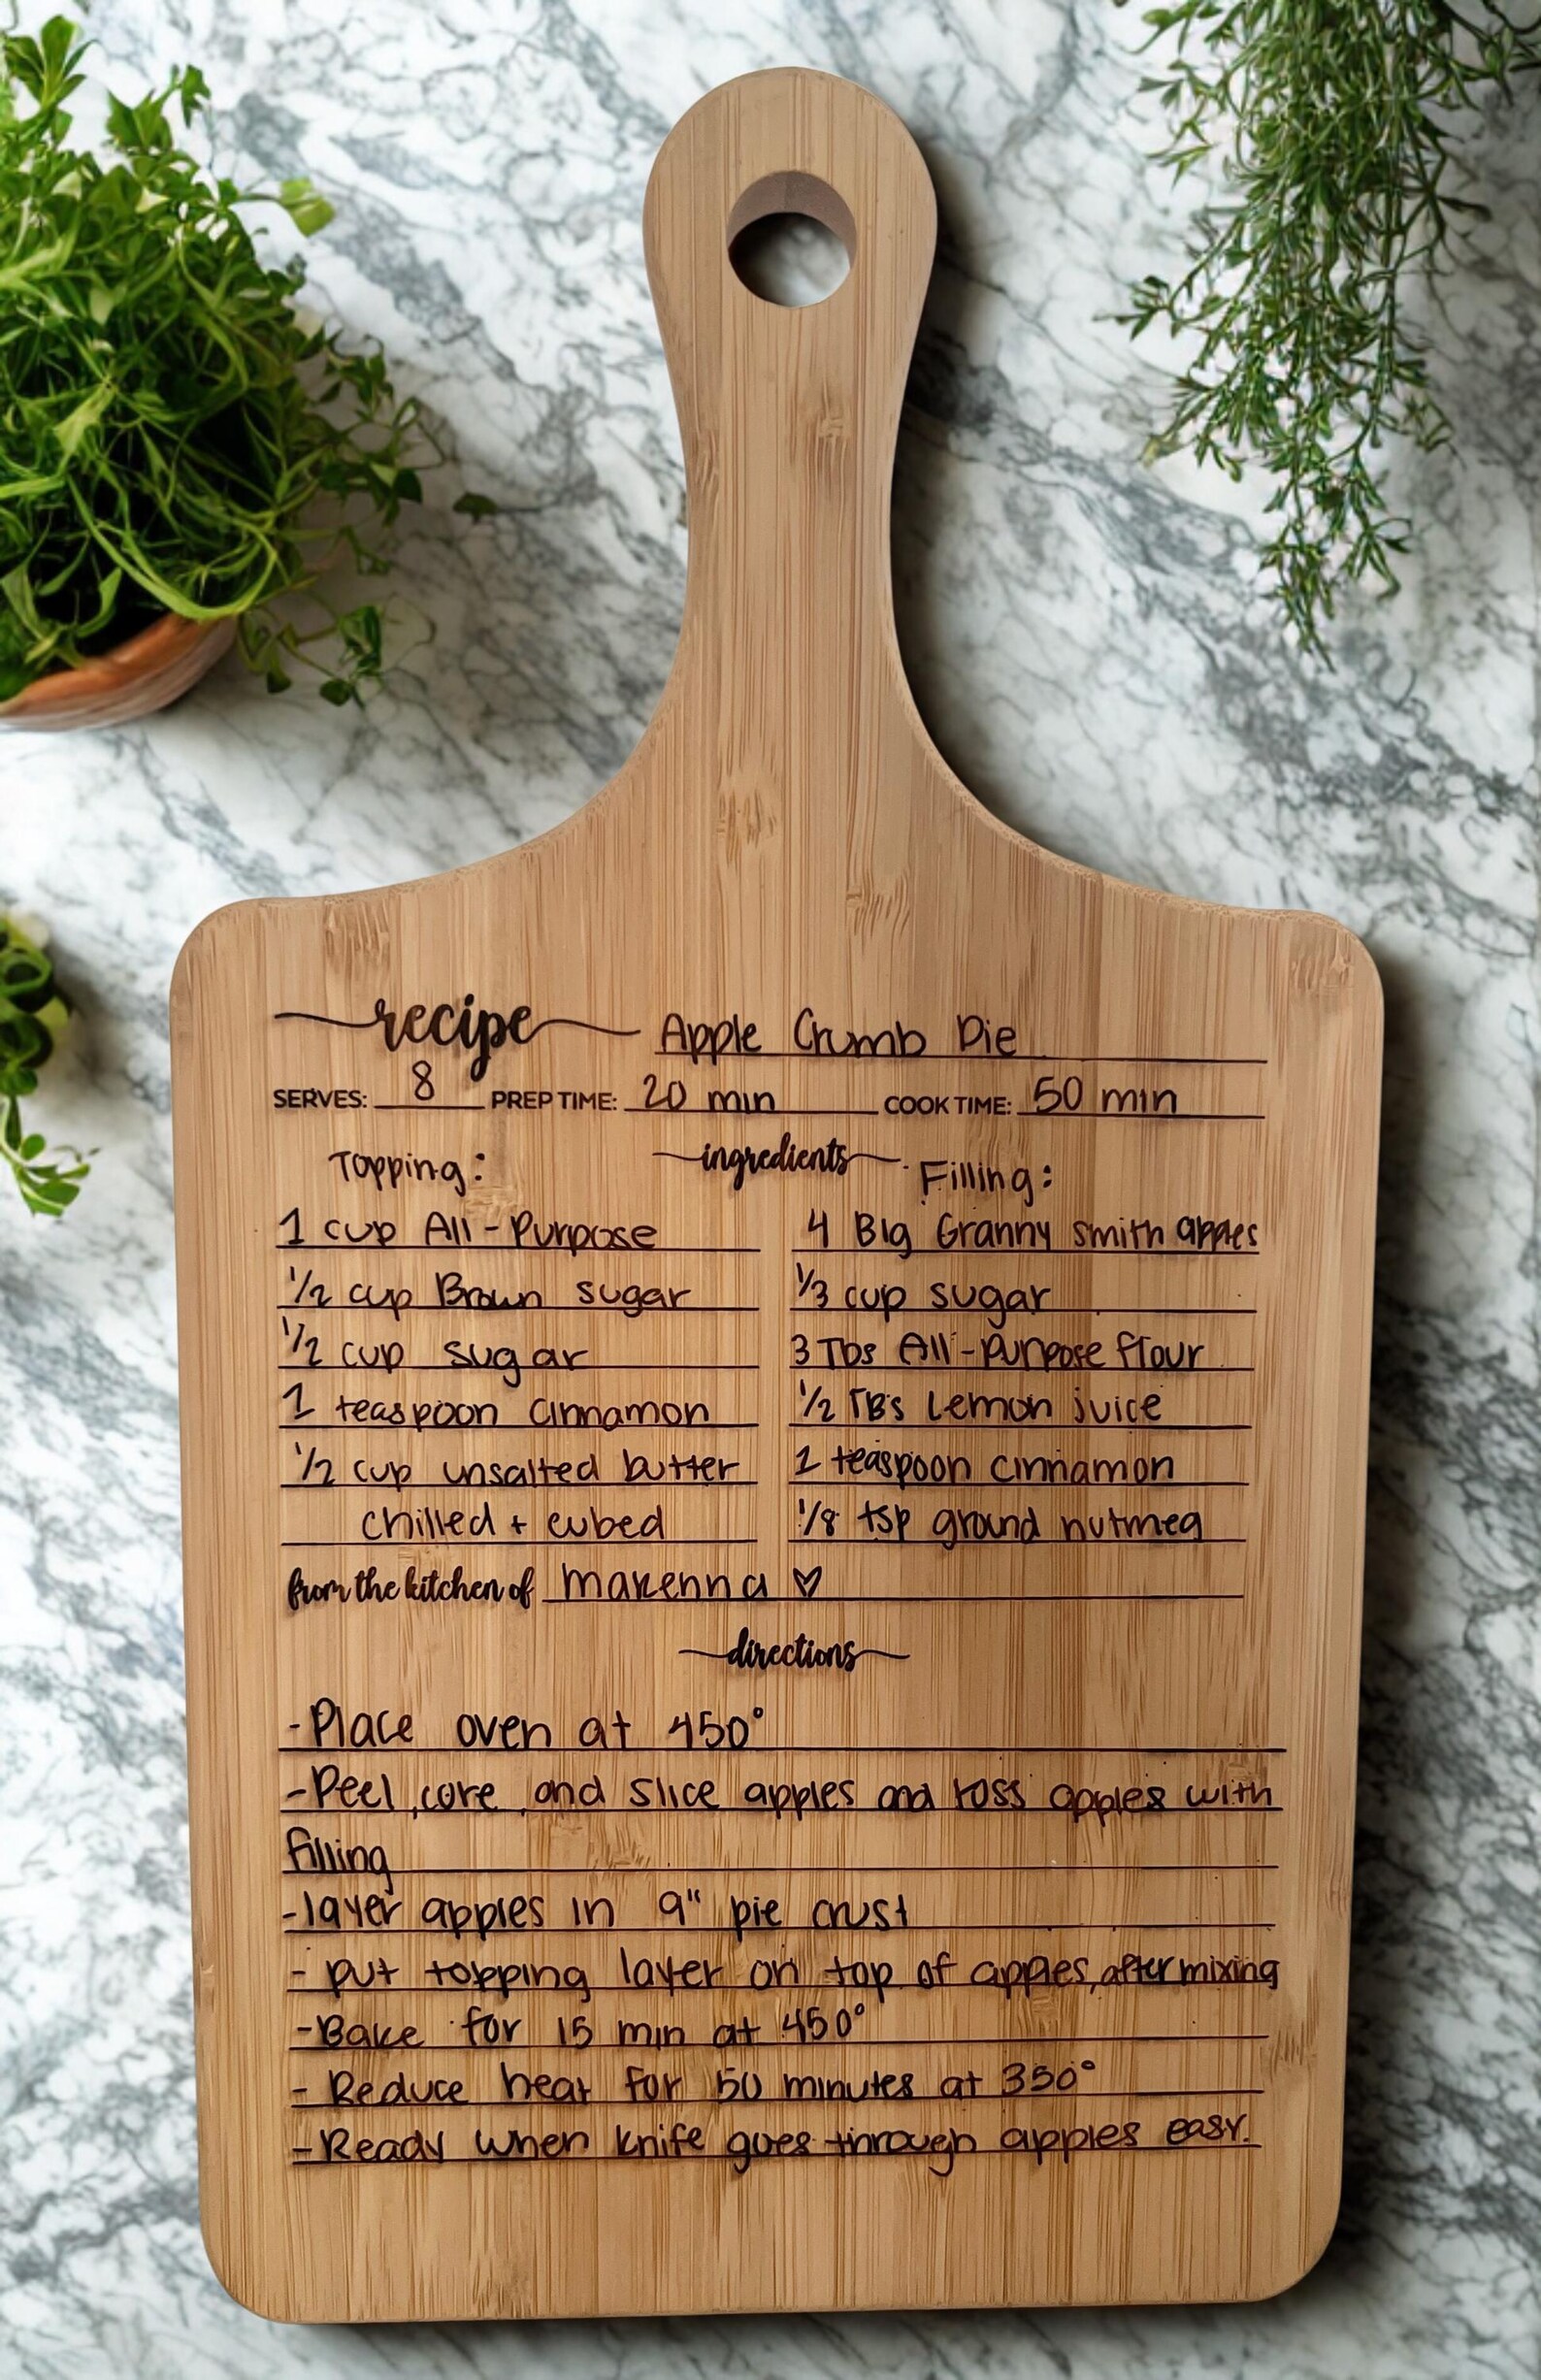 recipe Apple Crumb Pie
SERVES: 8 PREP TIME: 20 min COOK TIME: 50 min
ingredients
Topping:
1 cup All-Purpose
1/2 cup Brown sugar
1/2 cup sugar
1 teaspoon cinnamon
1/2 cup unsalted butter
chilled + cubed
Filling:
4 Big Granny smith apples
1/3 cup sugar
3 Tbs All-Purpose flour
1/2 TBS Lemon juice
1 teaspoon cinnamon
1/8 tsp ground nutmeg
from the kitchen of makenna ♡
directions
-Place oven at 450°
-Peel, core, and slice apples and toss apples with
filling
-layer apples in 9" pie crust
- put topping layer on top of apples, after mixing
-Bake for 15 min at 450°
- Reduce heat for 50 minutes at 350°
-Ready when knife goes through apples easy.